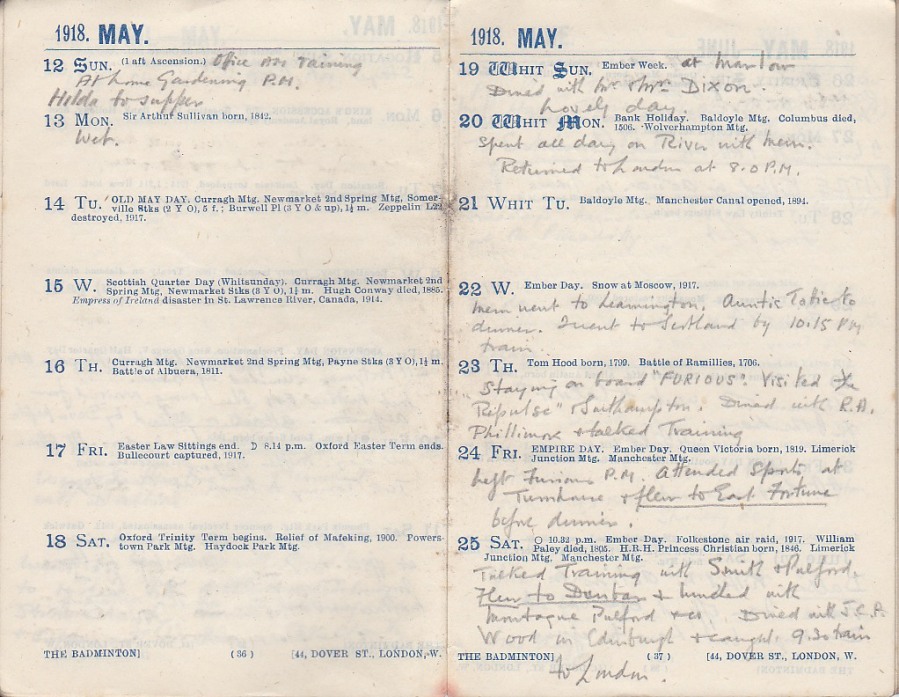 1918. MAY.
12 SUN. (1 aft Ascension.) Office Ass Training
At home Gardening P.M.
Hilda to supper
13 MON. Sir Arthur Sullivan born, 1842.
Wet.
14 TU. OLD MAY DAY. Curragh Mtg. Newmarket 2nd Spring Mtg, Somer-
ville Stks (2 Y O), 5 f.; Burwell Pl (3 Y O & up), 1½ m. Zeppelin L22
destroyed, 1917.
15 W. Scottish Quarter Day (Whitsunday). Curragh Mtg. Newmarket 2nd
Spring Mtg, Newmarket Stks (3 Y O), 1¼ m. Hugh Conway died, 1885.
Empress of Ireland disaster in St. Lawrence River, Canada, 1914.
16 TH. Curragh Mtg. Newmarket 2nd Spring Mtg, Payne Stks (3 Y O), 1¼ m.
Battle of Albuera, 1811.
17 FRI. Easter Law Sittings end. ☽ 8.14 p.m. Oxford Easter Term ends.
Bullecourt captured, 1917.
18 SAT. Oxford Trinity Term begins. Relief of Mafeking, 1900. Powers-
town Park Mtg. Haydock Park Mtg.
THE BADMINTON] (36) [44, DOVER ST., LONDON, W.
1918. MAY.
19 WHIT SUN. Ember Week. at Marlow
Dined with Mr & Mrs DIXON.
Lovely day.
20 WHIT MON. Bank Holiday. Baldoyle Mtg. Columbus died,
1506. Wolverhampton Mtg.
Spent all day on River with Mem.
Returned to London at 8.0 P.M.
21 WHIT TU. Baldoyle Mtg. Manchester Canal opened, 1894.
22 W. Ember Day. Snow at Moscow, 1917.
Mem went to Leamington. Auntie to
dinner. I went to Scotland by 10.15 PM
train.
23 TH. Tom Hood born, 1799. Battle of Ramillies, 1706.
Staying on board "FURIOUS". Visited the
"Repulse" & Southampton. Dined with R.A.
Phillimore & talked Training
24 FRI. EMPIRE DAY. Ember Day. Queen Victoria born, 1819. Limerick
Junction Mtg. Manchester Mtg.
Left Furious P.M. Attended Sports at
Turnhouse & flew to East Fortune
before dinner.
25 SAT. ○ 10.32 p.m. Ember Day. Folkestone air raid, 1917. William
Paley died, 1805. H.R.H. Princess Christian born, 1846. Limerick
Junction Mtg. Manchester Mtg.
Talked Training with Smith & Pulford.
Flew to Dunbar & lunched with
Montague Pulford & co. Dined with
Wood in Edinburgh & caught 9.30 train
to London.
THE BADMINTON] (37) [44, DOVER ST., LONDON, W.